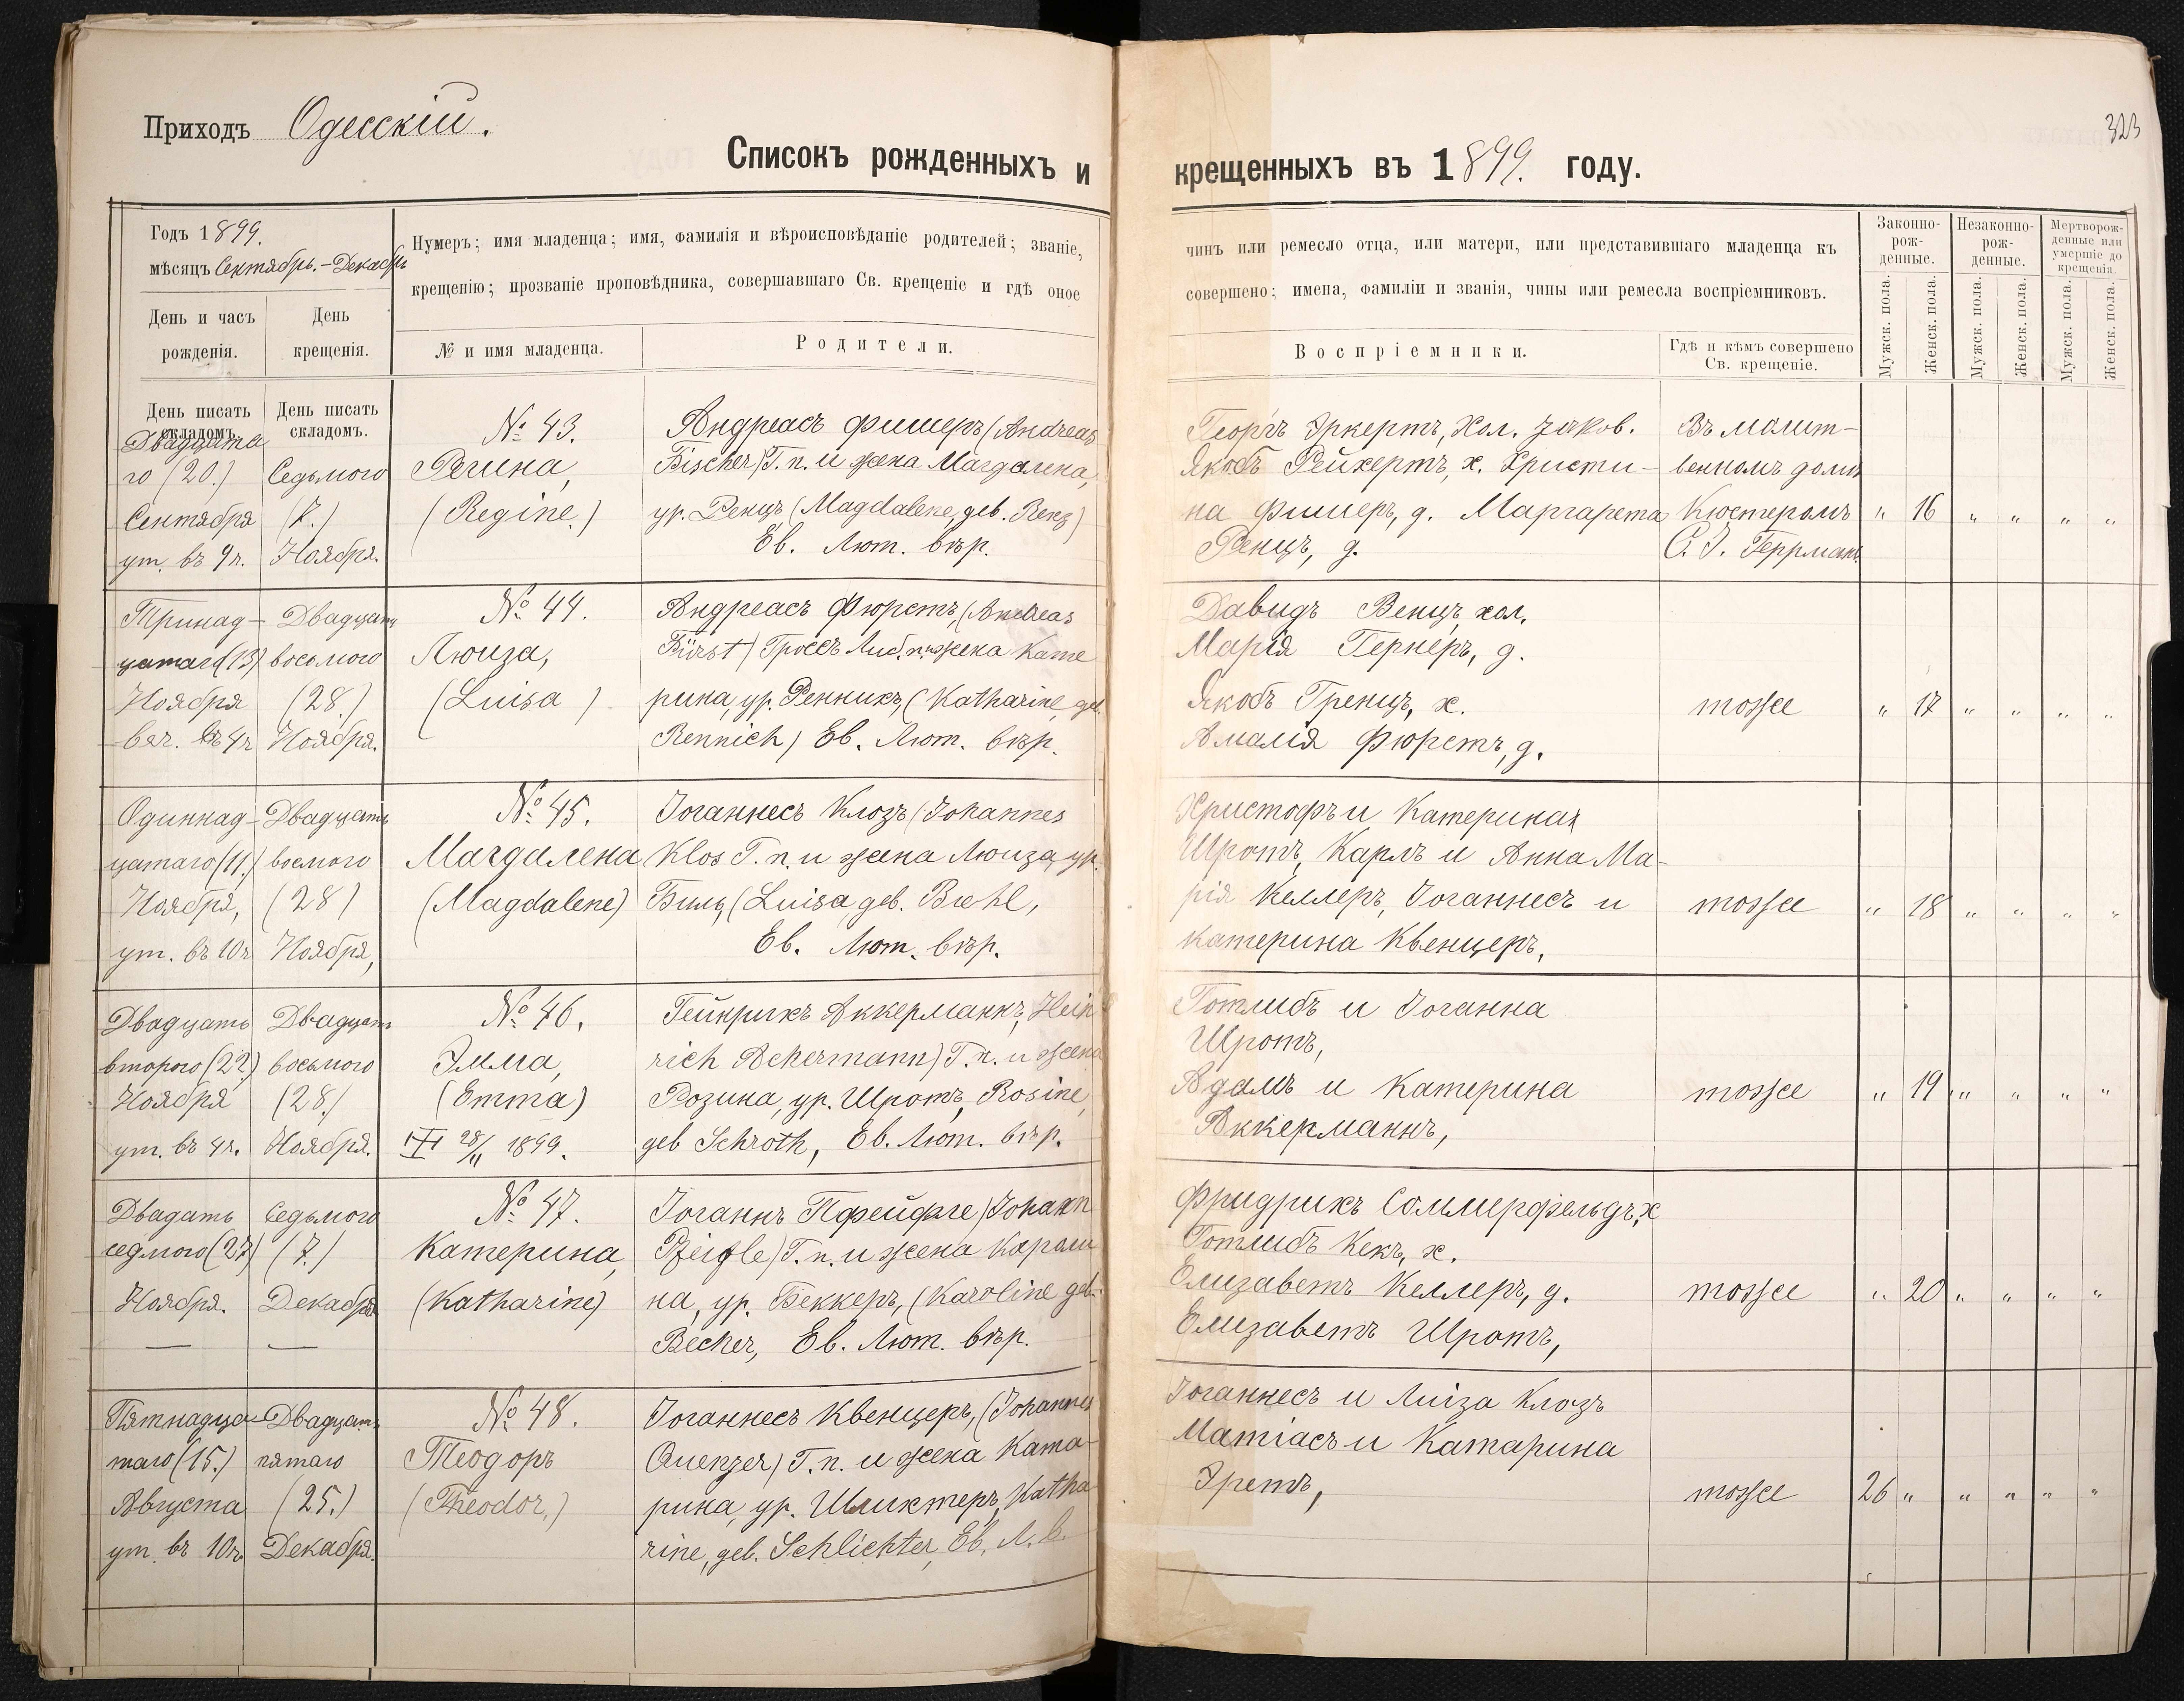 Приходъ Одесскій.
Списокъ рожденныхъ и крещенныхъ въ 1899. году.
323
Годъ 1899.
мѣсяцъ Сентябрь.-Декабрь
Нумеръ; имя младенца; имя, фамилія и вѣроисповѣданіе родителей; званіе,
крещенію; прозваніе проповѣдника, совершавшаго Св. крещеніе и гдѣ оное
чинъ или ремесло отца, или матери, или представившаго младенца къ
совершено; имена, фамиліи и званія, чины или ремесла воспріемниковъ.
Законно-
рож-
денные.
Незаконно-
рож-
денные.
Мертворож-
денные или
умершіе до
крещенія.
День и часъ
рожденія.
День
крещенія.
№ и имя младенца.
Родители.
Воспріемники.
Гдѣ и кѣмъ совершено
Св. крещеніе.
Мужск. пола.
Женск. пола.
Мужск. пола.
Женск. пола.
Мужск. пола.
Женск. пола.
День писать
складомъ.
День писать
складомъ.
Двадцата
го (20.)
Сентября
ут. въ 9ч.
Седьмого
(7.)
Ноября.
№ 43.
Регина,
(Regine.)
Андреасъ Фишеръ (Andreas
Fischer) Г. п. и жена Магдалена,
ур. Ренцъ (Magdalene, geb. Renz)
Ев. Лют. вѣр.
Георгъ Эркертъ, Хол.
Якобъ Рейхертъ, х. Кристи-
на Фишеръ, д. Маргарета
Ренцъ, д.
Въ молит-
венномъ домѣ
Кюстеромъ
Геррманъ
" 16 " " " "
Тринад-
цатаго (13)
Ноября
веч. въ 4ч
Двадцать
восьмого
(28.)
Ноября.
№ 44.
Люиза,
(Luisa)
Андреасъ Фюрстъ, (Andreas
Fürst) Гросъ Либ. п. и жена Кате
рина, ур. Ренникъ, (Katharine, geb.
Rennich) Ев. Лют. вѣр.
Давидъ Венцъ, хол.
Марія Гернеръ, д.
Якобъ Гренцъ, х.
Амалія Фюрстъ, д.
тоже
" 17 " " " "
Одиннад-
цатаго (11.)
Ноября,
ут. въ 10ч
Двадцать
восмого
(28)
Ноября,
№ 45.
Магдалена
(Magdalene)
Іоганнесъ Клозъ (Johannes
Klos Г. п. и жена Люиза, ур.
Биль, (Luisa geb. Biehl,
Ев. Лют. вѣр.
Христофъ и Катерина
Шротъ, Карлъ и Анна Ма-
рія Келлеръ, Іоганнесъ и
Катерина Квенцеръ,
тоже
" 18 " " " "
Двадцать
второго (22.)
Ноября
ут. въ 4ч.
Двадцать
восьмого
(28.)
Ноября.
№ 46.
Эмма,
(Emma)
28/11 1899.
Гейнрихъ Аккерманнъ, Hein
rich Ackermann) Г. п. и жена
Розина, ур. Шротъ, Rosine,
geb Schroth, Ев. Лют. вѣр.
Готлибъ и Іоганна
Шротъ,
Адамъ и Катерина
Аккерманнъ,
тоже
" 19 " " " "
Двадать
седмого (27)
Ноября.
—
Седьмого
(7.)
Декабря
—
№ 47.
Катерина,
(Katharine)
Іоганнъ Пфейфле (Johann
Pfeifle) Г. п. и жена Кароли
на, ур. Беккеръ, (Karoline geb.
Becker, Ев. Лют. вѣр.
Фридрихъ Соммерфельдъ, х
Готлибъ Кекъ, х.
Елизаветъ Келлеръ, д.
Елизаветъ Шротъ,
тоже
" 20 " " " "
Пятнадца-
таго (15.)
Августа
ут. въ 10ч.
Двадцать
пятаго
(25.)
Декабря.
№ 48.
Теодоръ
(Theodor,)
Іоганнесъ Квенцеръ, (Johannes
Quenzer) Г. п. и жена Ката-
рина, ур. Шлихтеръ, Katha
rine, geb. Schlichter, Ев. Л. в.
Іоганнесъ и Лиіза Клозъ
Матіасъ и Катарина
Эретъ,
тоже
26 " " " " "